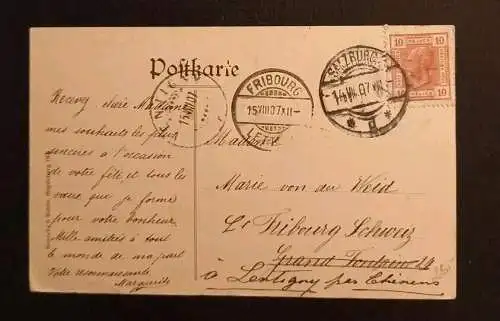 Postkarte
SALZBURG
14 VIII 07
FRIBOURG
15 VIII 07 XII
LETTR.
10 10
Recevez chère Madame
mes souhaits les plus
sincères à l'occasion
de votre fête, et tous les
vœux que je forme
pour votre bonheur.
Mille amitiés à tout
le monde de ma part
Votre reconnaissante
Marguerite
Madame
Marie von der Weid
Fribourg Schweiz
Grand Fontaine 24
à Lentigny par Chénens